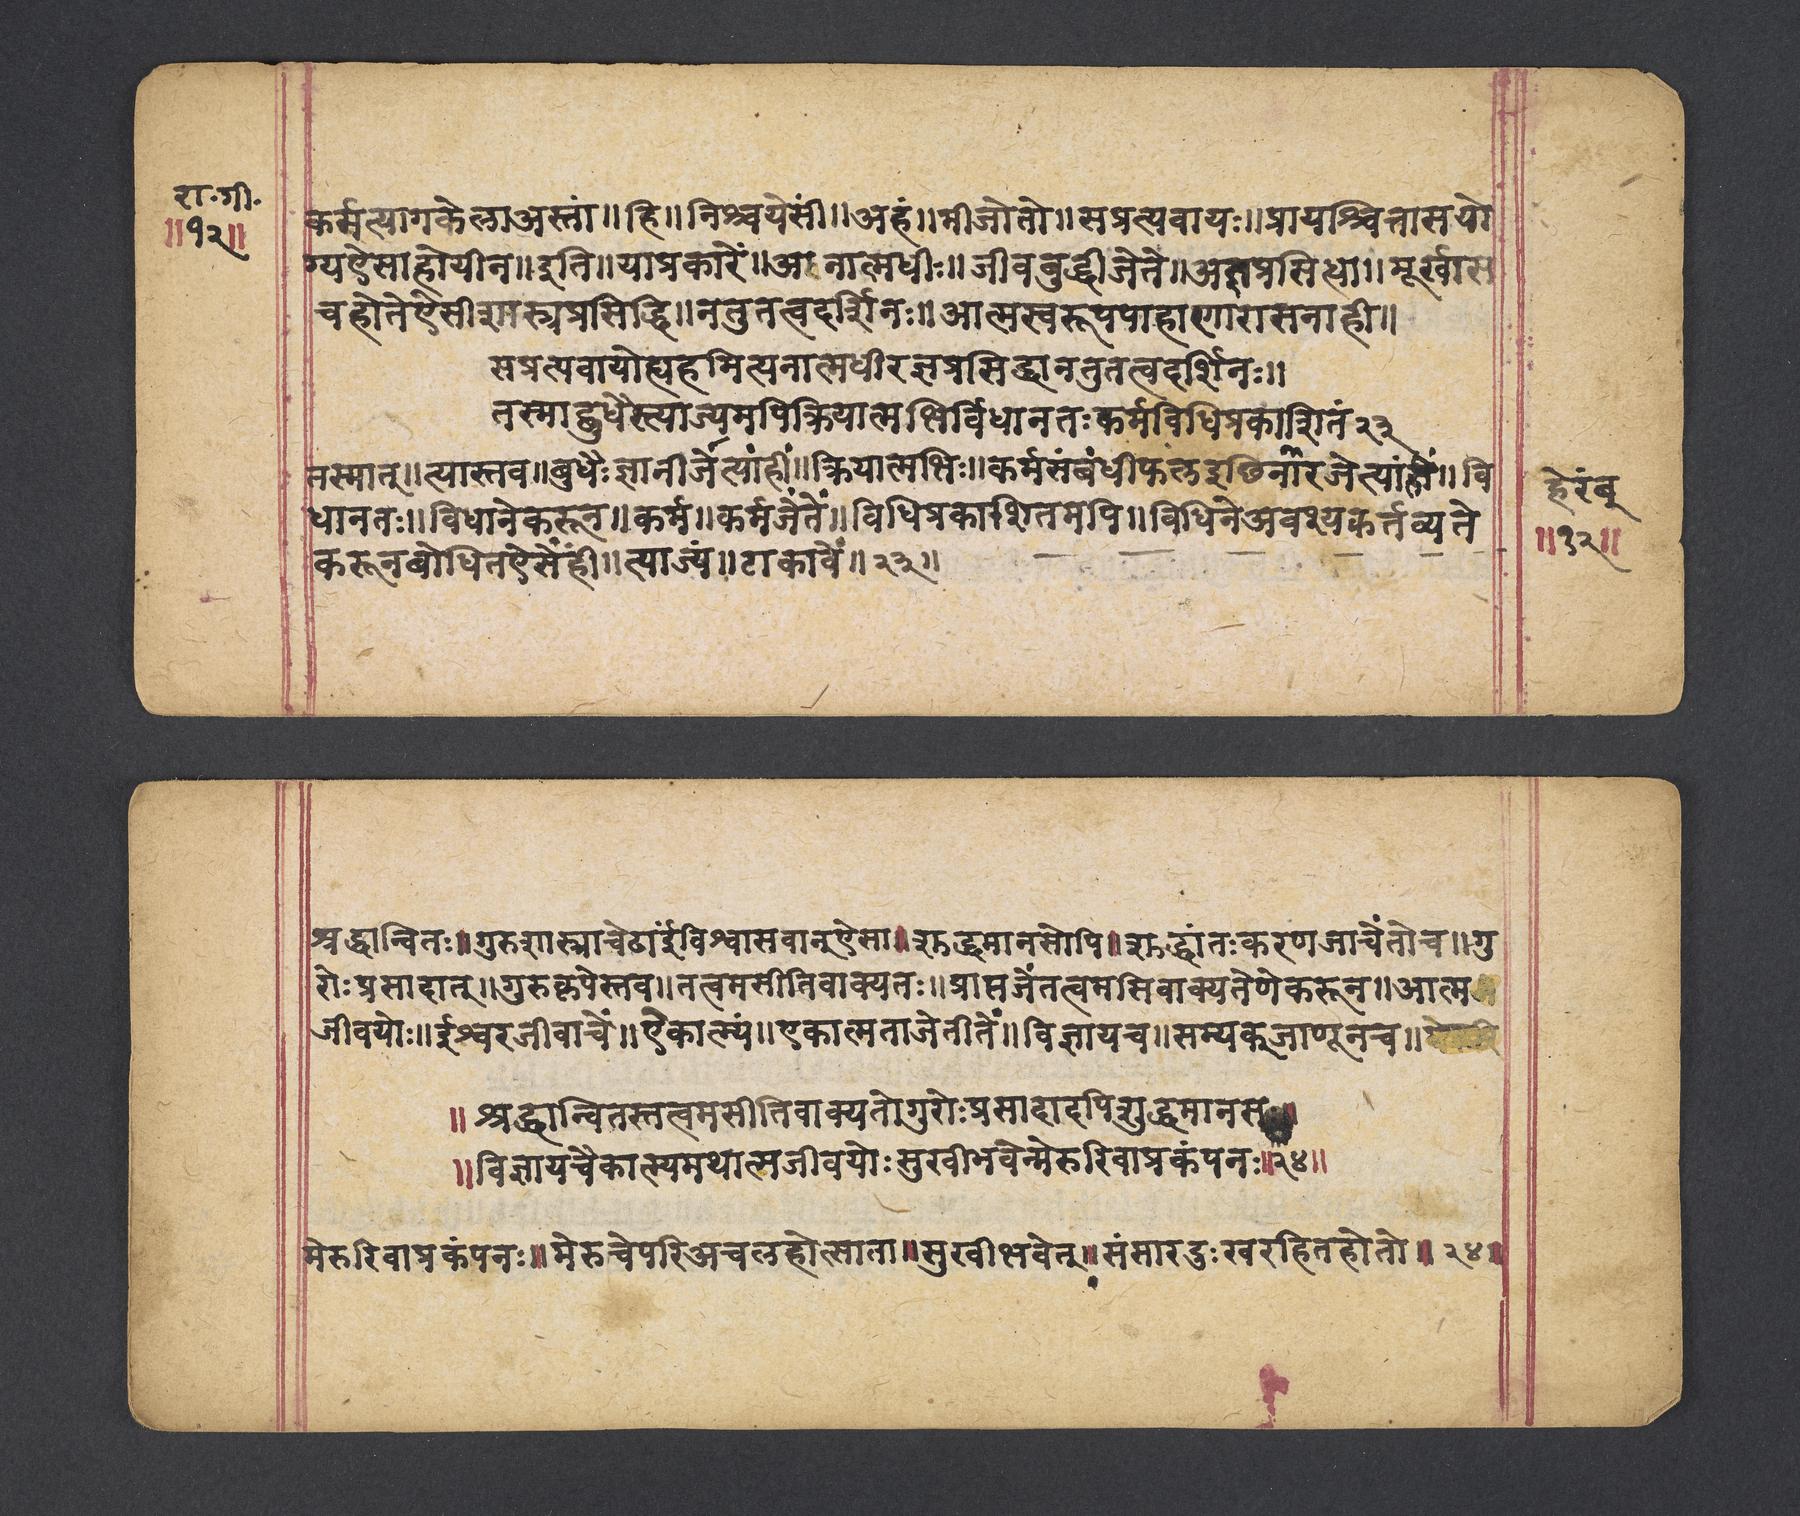 रा॰गी॰
॥१२॥
कर्मत्यागकेलाअस्तां॥हि॥निश्चयेसी॥अहं॥मीजोतो॥सप्रत्यवायः॥प्रायश्चित्तासयो
ग्यऐसाहोयीन॥इति॥याप्रकारें॥अनात्मधीः॥जीवबुद्धीजेते॥अज्ञप्रसिद्धा॥मूर्खास
चहोतेऐसीशास्त्रप्रसिद्धि॥नतुतत्वदर्शिनः॥आत्मस्वरूपपाहाणारासनाही॥
सप्रत्यवायोह्यहमित्यनात्मधीरज्ञप्रसिद्धानतुतत्वदर्शिनः॥
तस्माद्बुधैस्त्याज्यमपिक्रियात्मभिर्विधानतःकर्मविधिप्रकाशितं२३
तस्मात्॥त्यास्तव॥बुधैःज्ञानीजेत्यांहीं॥क्रियात्मभिः॥कर्मसंबंधीफलइछिनारजेत्यांहीं॥वि
धानतः॥विधानेकरून॥कर्म॥कर्मजेंतें॥विधिप्रकाशितमपि॥विधिनेअवश्यकर्त्तव्यते
करूनबोधितऐसेंहीं॥त्याज्यं॥टाकावें॥२३॥
हेरंब्
॥१२॥
श्रद्धान्वितः॥गुरुशास्त्राचेठाईविश्वासवान्ऐसा॥शुद्धमानसोपि॥शुद्धांतःकरणजाचेंतोच॥गु
रोःप्रसादात्॥गुरुकृपेस्तव॥तत्वमसीतिवाक्यतः॥प्राप्तजेंतत्वमसिवाक्यतेणेकरून॥आत्म
जीवयोः॥ईश्वरजीवाचें॥ऐकात्म्यं॥एकात्मताजेतीतें॥विज्ञायच॥सम्यक्जाणूनच॥
॥श्रद्धान्वितस्तत्वमसीतिवाक्यतोगुरोःप्रसादादपिशुद्धमानसः॥
॥विज्ञायचैकात्म्यमथात्मजीवयोःसुखीभवेन्मेरुरिवाप्रकंपनः॥२४॥
मेरुरिवाप्रकंपनः॥मेरुचेपरिअचलहोत्साता॥सुखीभवेत्॥संसारदुःखरहितहोतो॥२४॥